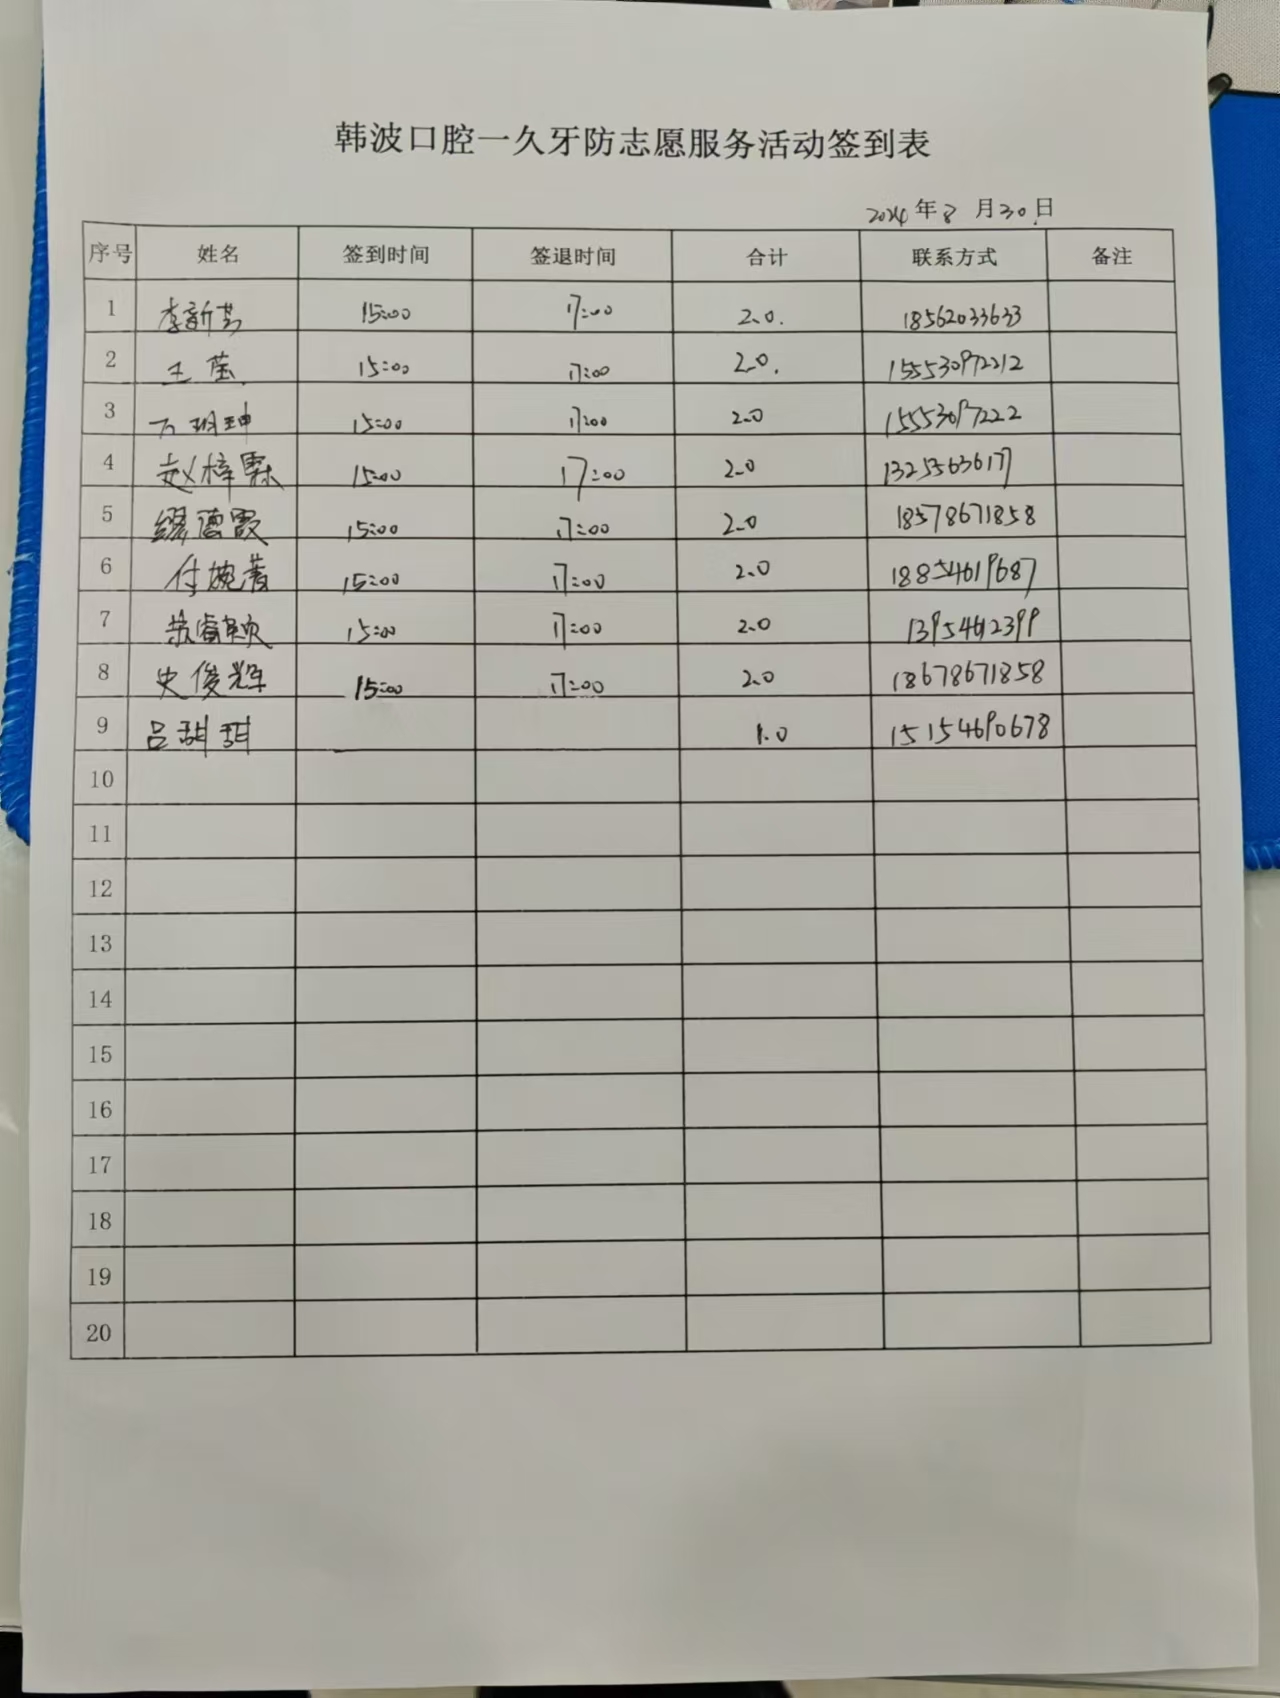 韩波口腔一久牙防志愿服务活动签到表
2024年8月30日
序号 姓名 签到时间 签退时间 合计 联系方式 备注
1 李新芳 15:00 17:00 2.0. 18562033633
2 王莹 15:00 17:00 2.0. 155530972212
3 15:00 17:00 2.0 15553097222
4 赵梓霖 15:00 17:00 2.0 13255636177
5 缪德霞 15:00 17:00 2.0 18578671858
6 付婉菁 15:00 17:00 2.0 18854619687
7 睿颖 15:00 17:00 2.0 13954612399
8 史俊辉 15:00 17:00 2.0 18678671858
9 吕甜甜 1.0 15154690678
10
11
12
13
14
15
16
17
18
19
20